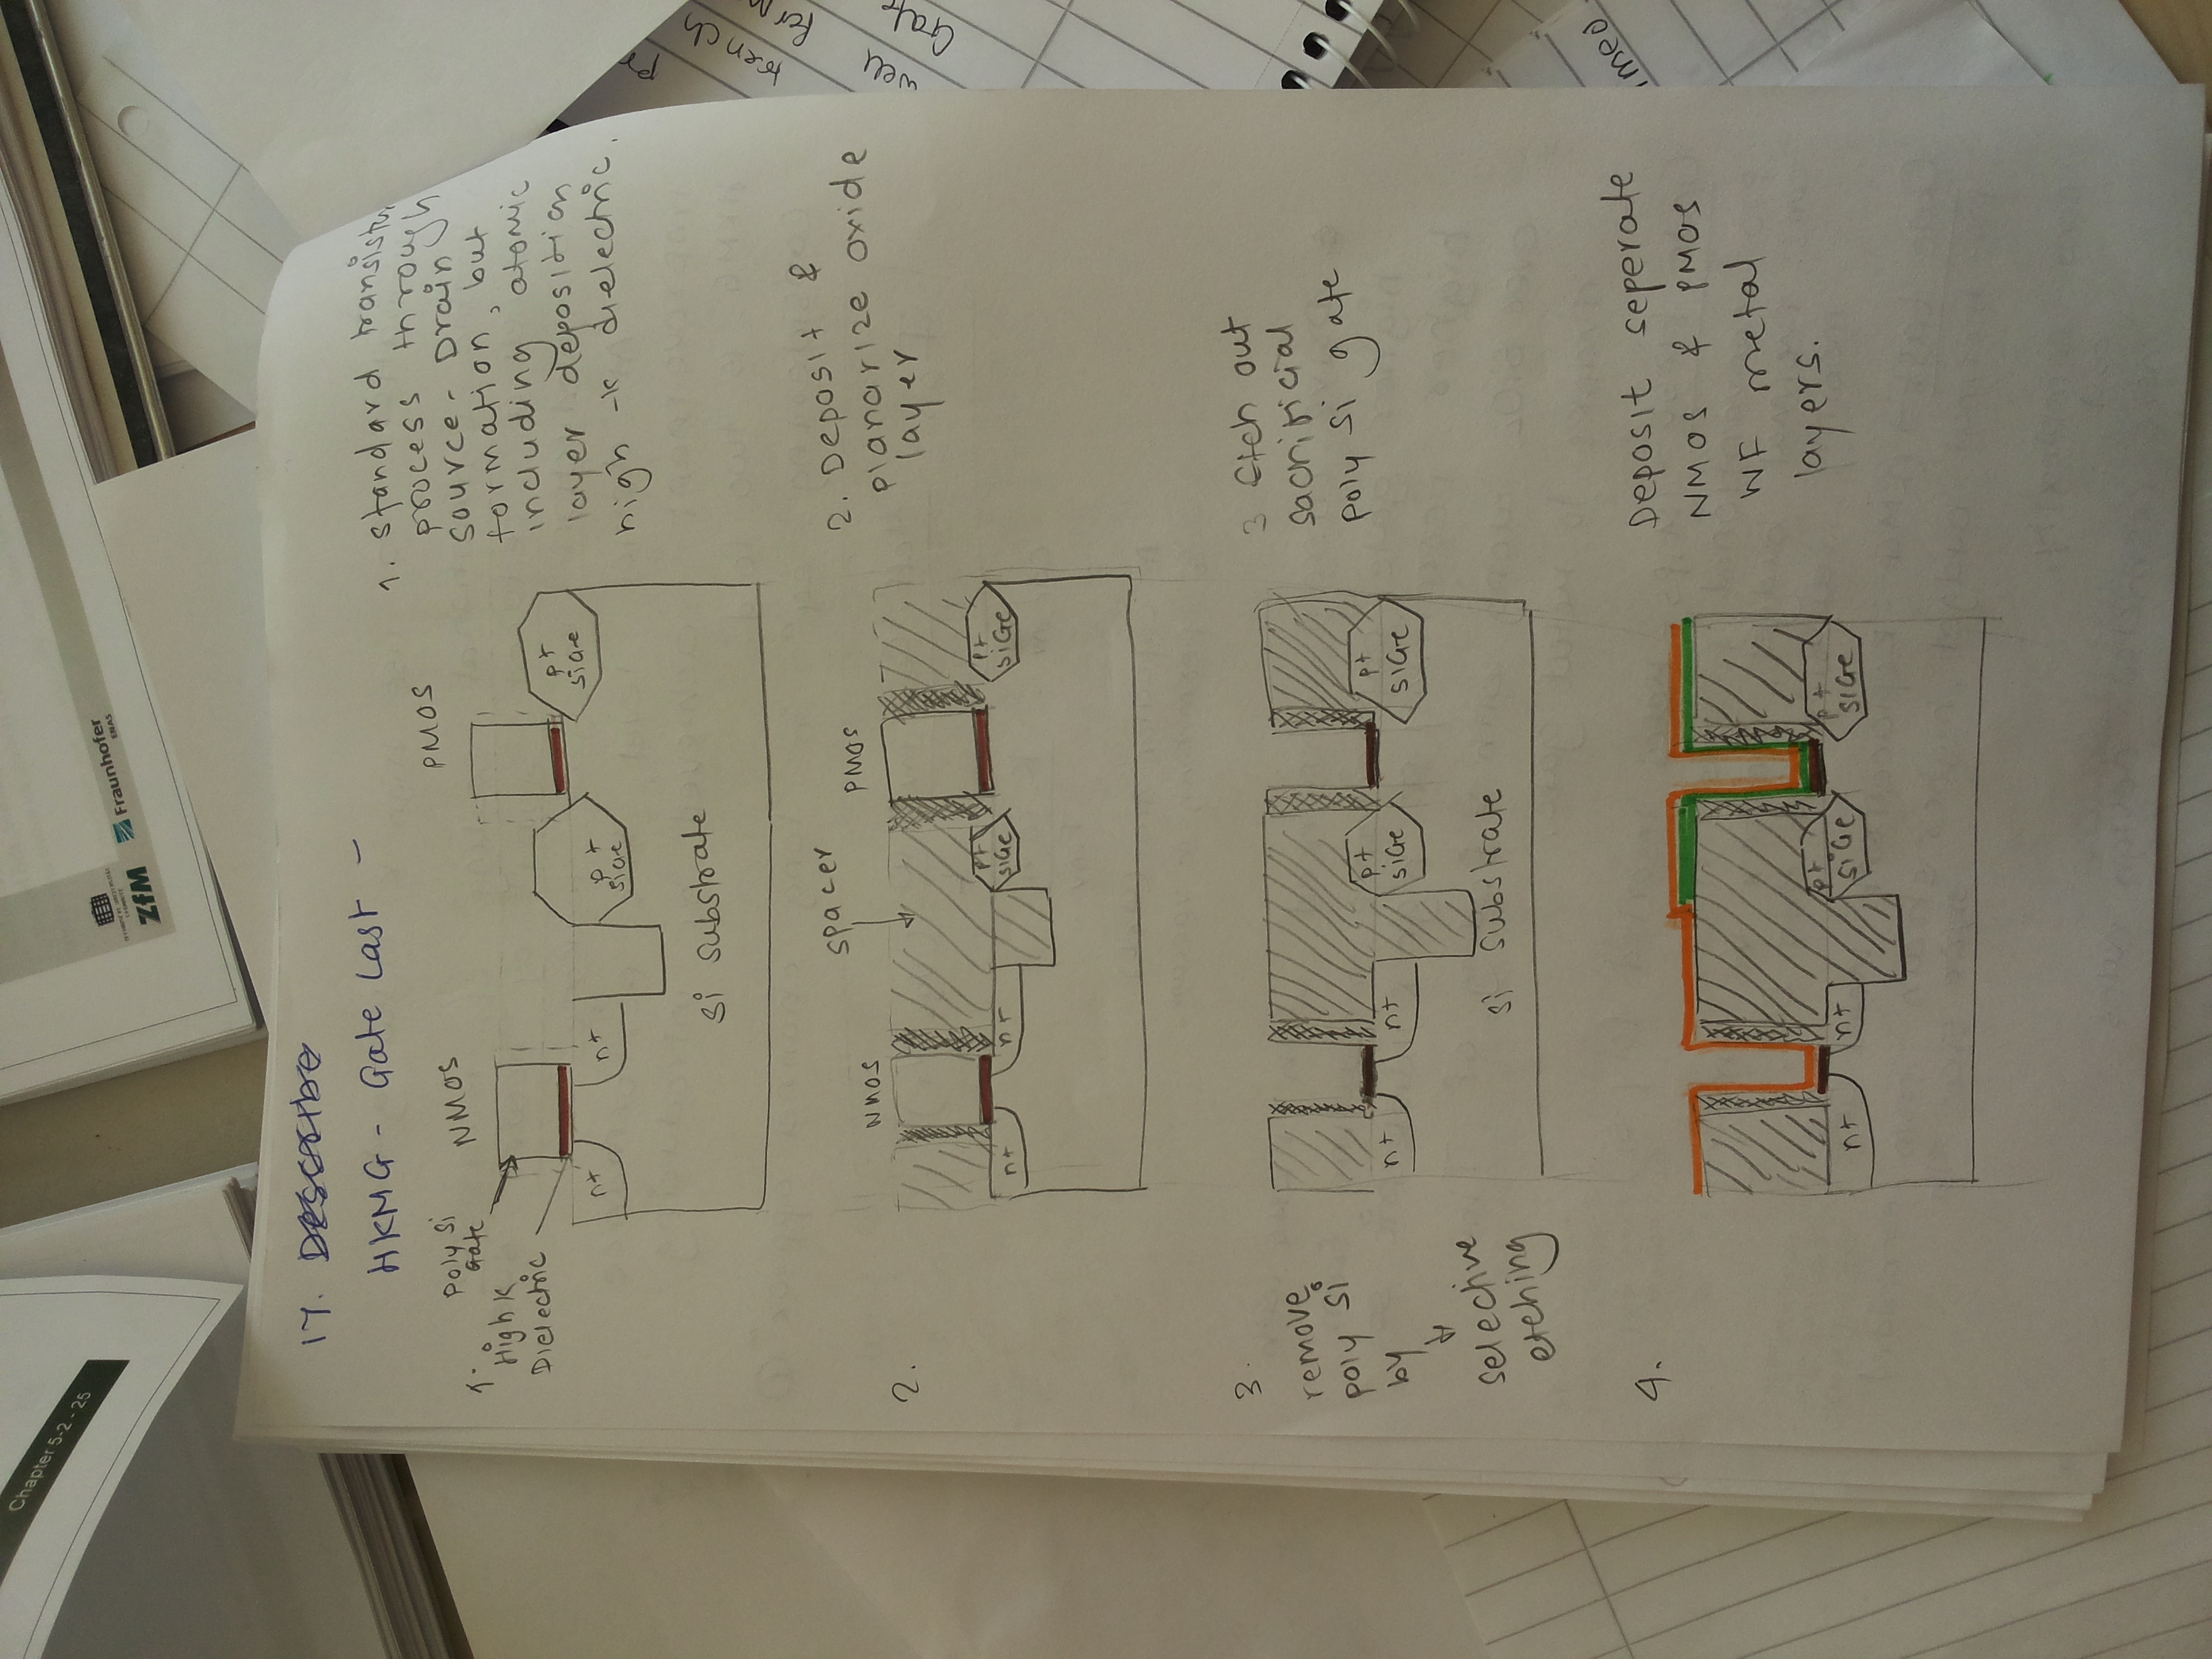 Chapter 5-2 - 25
ZfM
Fraunhofer
ENAS
17. Describe
HKMG - Gate Last -
1.
Poly Si
Gate
NMOS
PMOS
High K
Dielectric
n+
n+
p+
SiGe
p+
SiGe
Si substrate
1. Standard transistor
process through
source - Drain
formation, but
including atomic
layer deposition
high -k dielectric.
2.
NMOS
spacer
PMOS
n+
n+
p+
SiGe
p+
SiGe
2. Deposit &
planarize oxide
layer
3.
remove
poly Si
by
selective
etching
n+
n+
p+
SiGe
p+
SiGe
Si substrate
3 Etch out
sacrificial
poly Si gate
4.
n+
n+
p+
SiGe
p+
SiGe
Deposit seperate
NMOS & PMOS
WF metal
layers.
trench
well
Gate